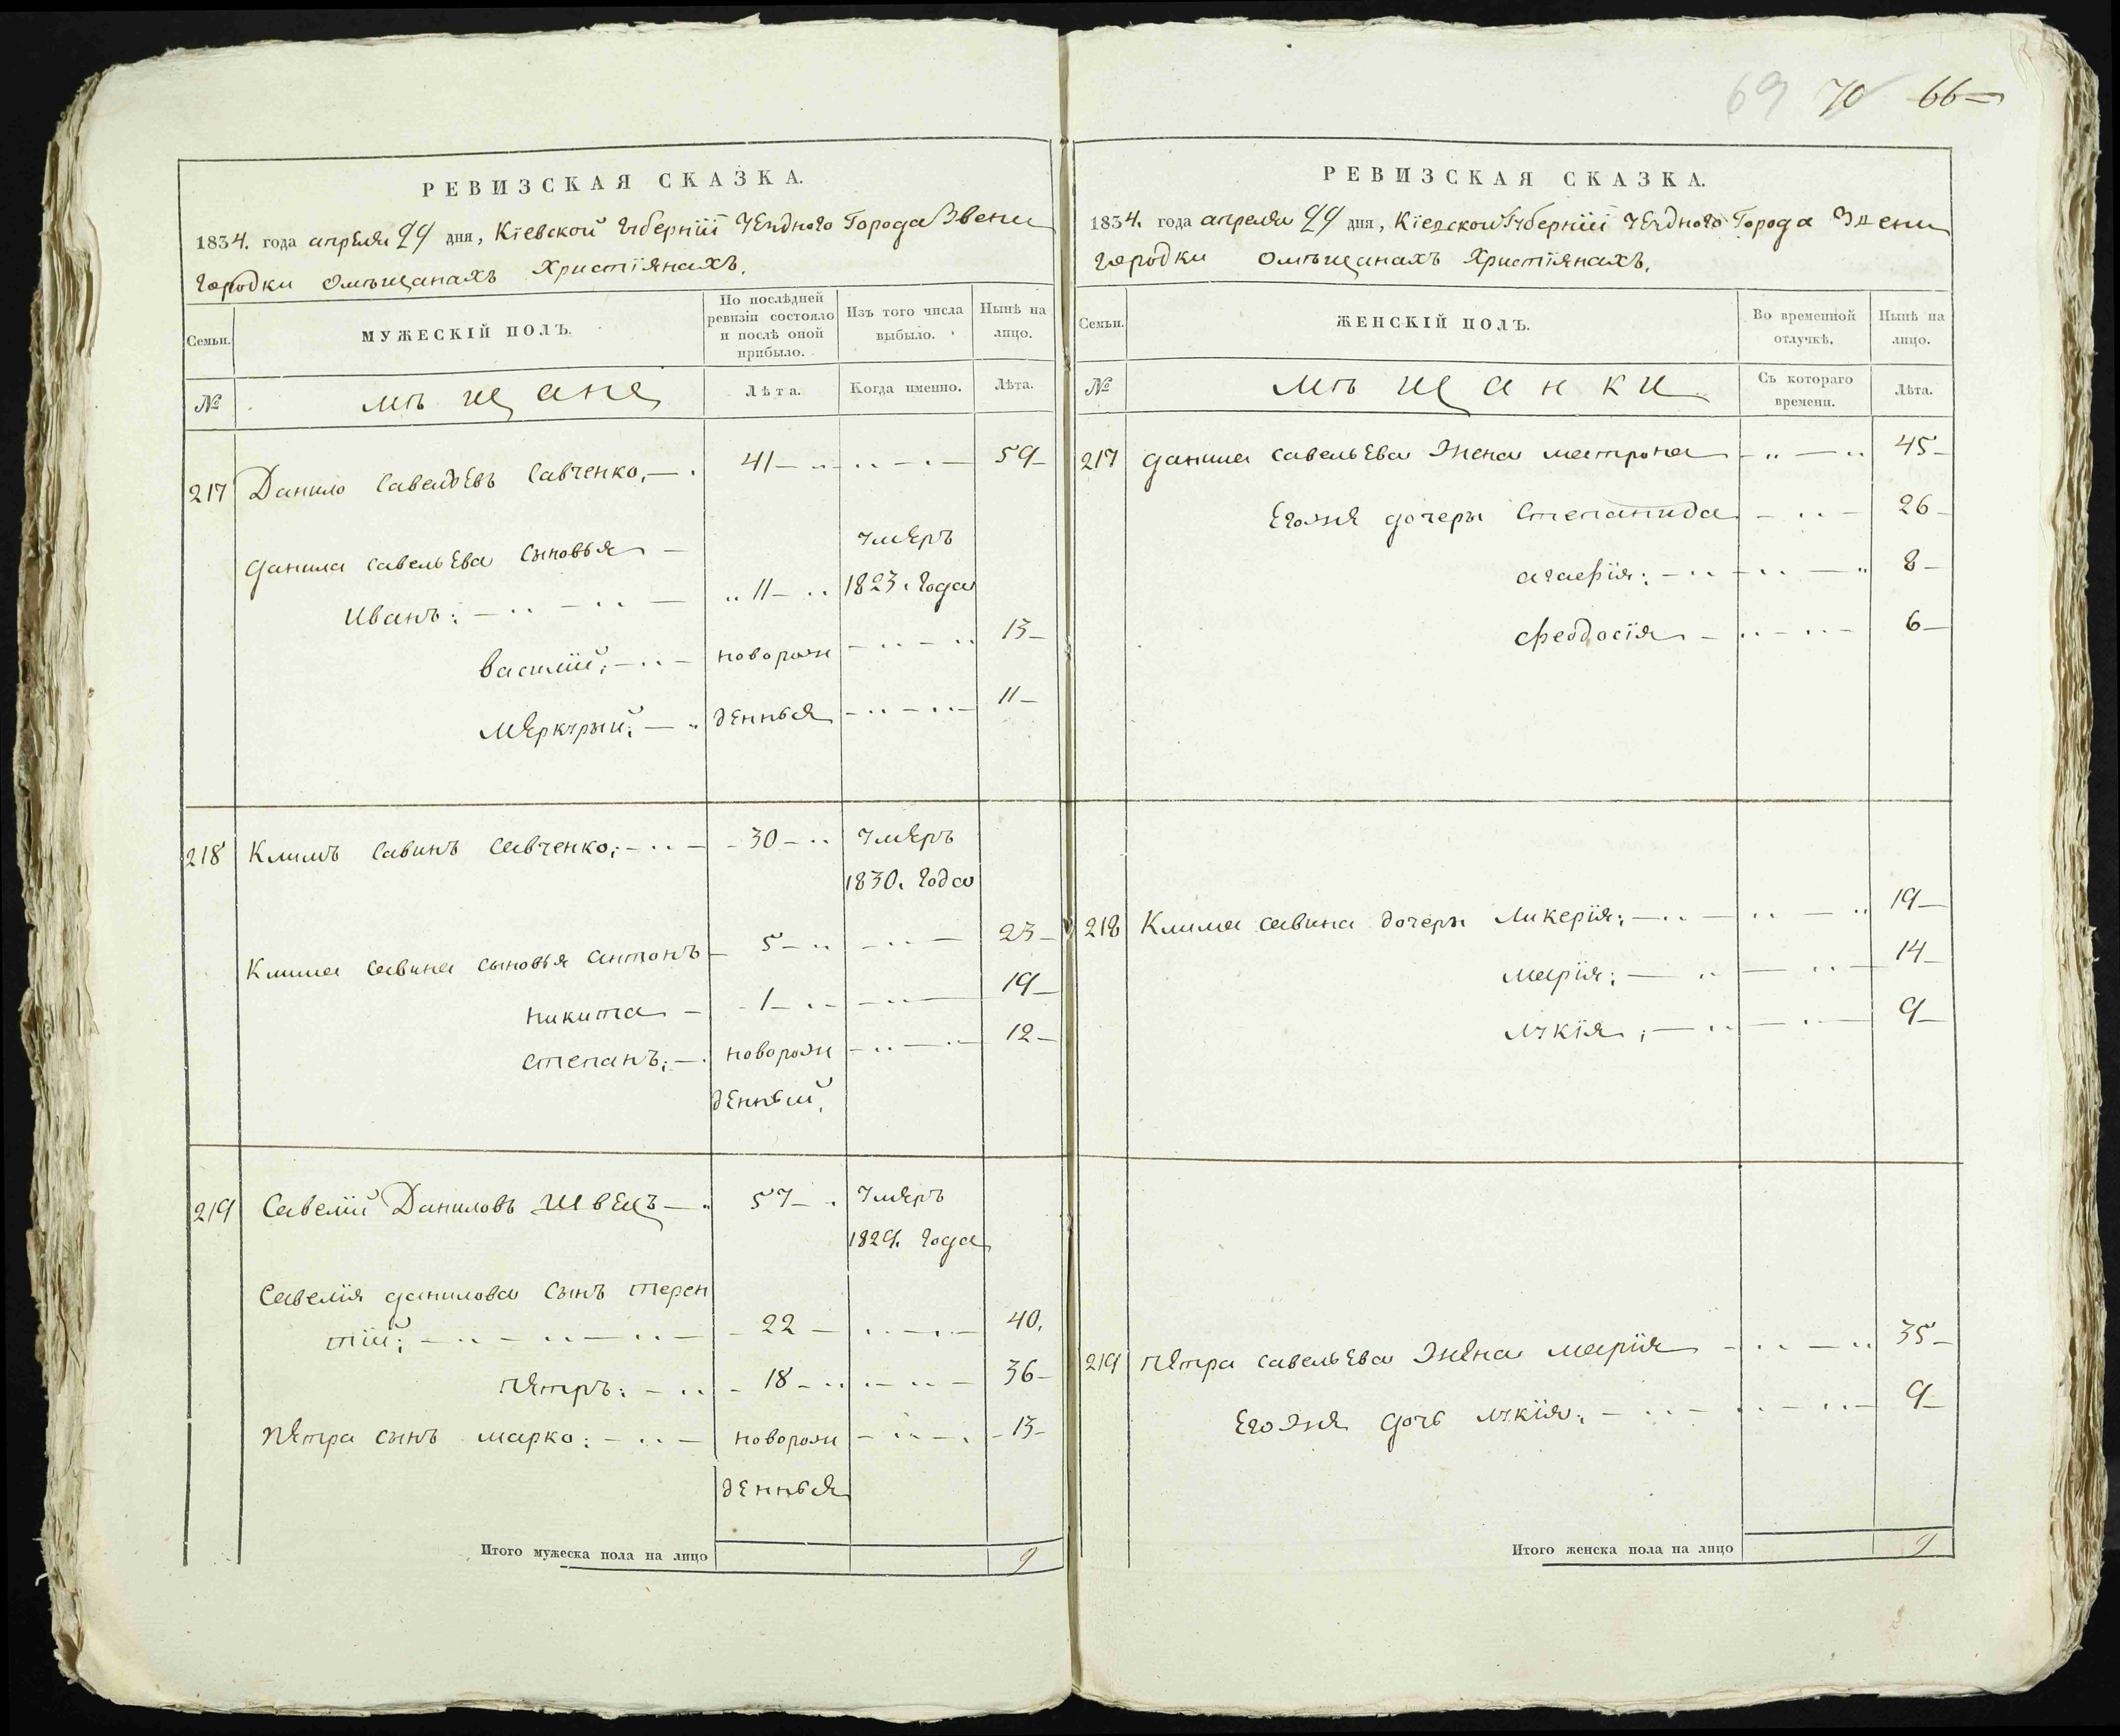 69 70 66
РЕВИЗСКАЯ СКАЗКА.
1834. года апреля 29 дня, Кіевской Губерніи Уезднаго Города Звени
городки омѣщанахъ Христіянахъ.
Семьи.
МУЖЕСКІЙ ПОЛЪ.
По послѣдней ревизіи состояло и послѣ оной прибыло.
Изъ того числа выбыло.
Нынѣ на лицо.
№
мѣщане
Лѣта.
Когда именно.
Лѣта.
217 Данило Савельевъ Савченко, 41 59
Данила савельева сыновья умеръ
Иванъ: 11 1823. года
василій, новорож 13
меркурий: денныя 11
218 Климъ Савинъ Савченко; 30 умеръ
1830. года
Клима савина сыновья антонъ 5 23
никита 1 19
степанъ: новорож 12
денный,
219 Савелій Даниловъ Швецъ 57 умеръ
1829. года
Савелія данилова сынъ терен
тій; 22 40.
петръ: 18 36
петра сынъ марко: новорож 13
денныя
Итого мужеска пола на лицо 9
РЕВИЗСКАЯ СКАЗКА.
1834. года апреля 29 дня, Кіевской Губерніи Уезднаго Города Звени
городки омѣщанахъ Христіянахъ.
Семьи.
ЖЕНСКІЙ ПОЛЪ.
Во временной отлучкѣ.
Нынѣ на лицо.
№
мѣщанки
Съ котораго времени.
Лѣта.
217 Данила савельева жена матрона 45
Егожя дочери Степанида 26
агафія: 8
феодосія 6
218 Клима савина дочери Ликерія: 19
марія: 14
лукія, 9
219 петра савельева жена марія 35
Егожя дочь лукія. 9
Итого женска пола на лицо 9